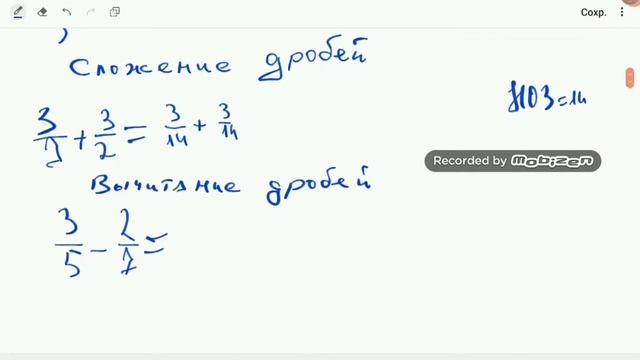 Сохр.
)
Сложение дробей
НОЗ=14
3/7 + 3/2 = 3/14 + 3/14
Recorded by MOBIZEN
Вычитание дробей
3/5 - 2/7 =